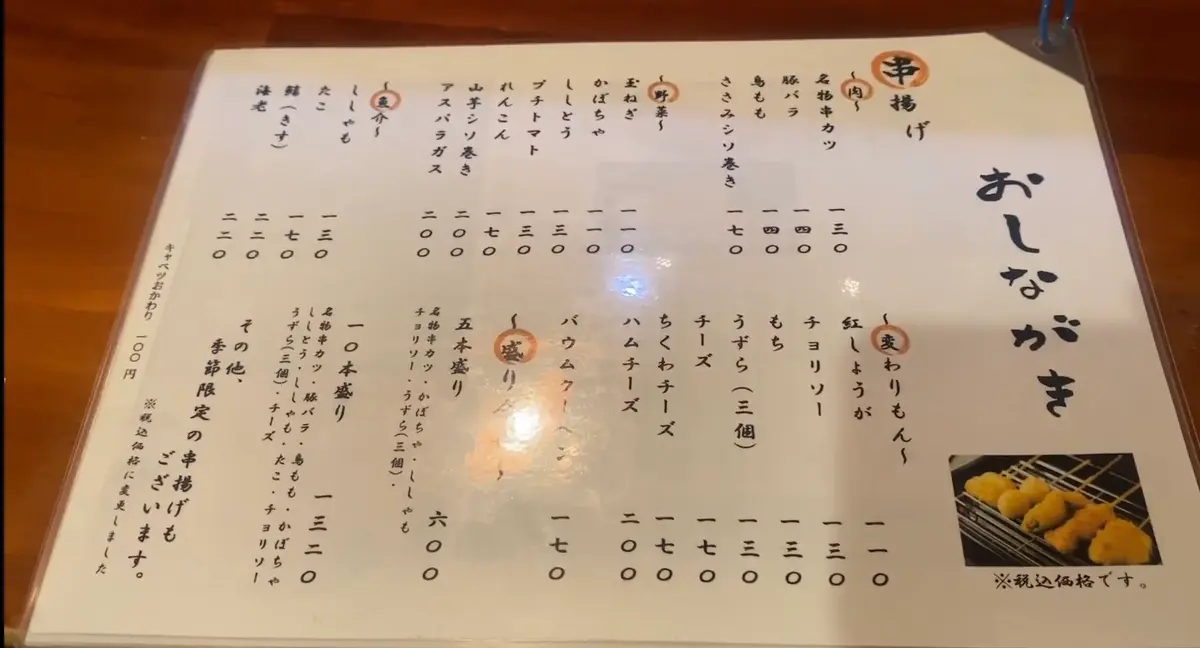 おしながき
※税込価格です。
串揚げ
～肉～
名物串カツ 一三〇
豚バラ 一四〇
鳥もも 一四〇
ささみシソ巻き 一七〇
～野菜～
玉ねぎ 一一〇
かぼちゃ 一一〇
ししとう 一三〇
プチトマト 一三〇
れんこん 一七〇
山芋シソ巻き 二〇〇
アスパラガス 二〇〇
～魚介～
ししゃも 一三〇
たこ 一七〇
鱚（きす） 二二〇
海老 二二〇
～変わりもん～
紅しょうが 一一〇
チョリソー 一三〇
もち 一三〇
うずら（三個） 一三〇
チーズ 一七〇
ちくわチーズ 一七〇
ハムチーズ 二〇〇
バウムクーヘン 一七〇
～盛り
五本盛り 六〇〇
名物串カツ・かぼちゃ・ししゃも
チョリソー・うずら（三個）・
一〇本盛り 一三二〇
名物串カツ・豚バラ・鳥もも・かぼちゃ
ししとう・ししゃも・たこ・チョリソー
うずら（三個）・チーズ
その他、
季節限定の串揚げも
ございます。
キャベツおかわり 一〇〇円
※税込価格に変更しました